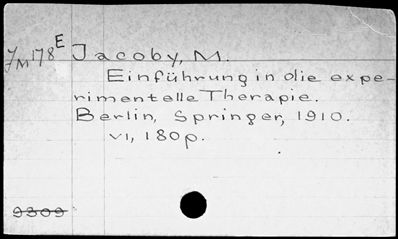 7M178E
Jacoby, M.
Einführung in die expe-
rimentelle Therapie.
Berlin, Springer, 1910.
VI, 180p.
9309